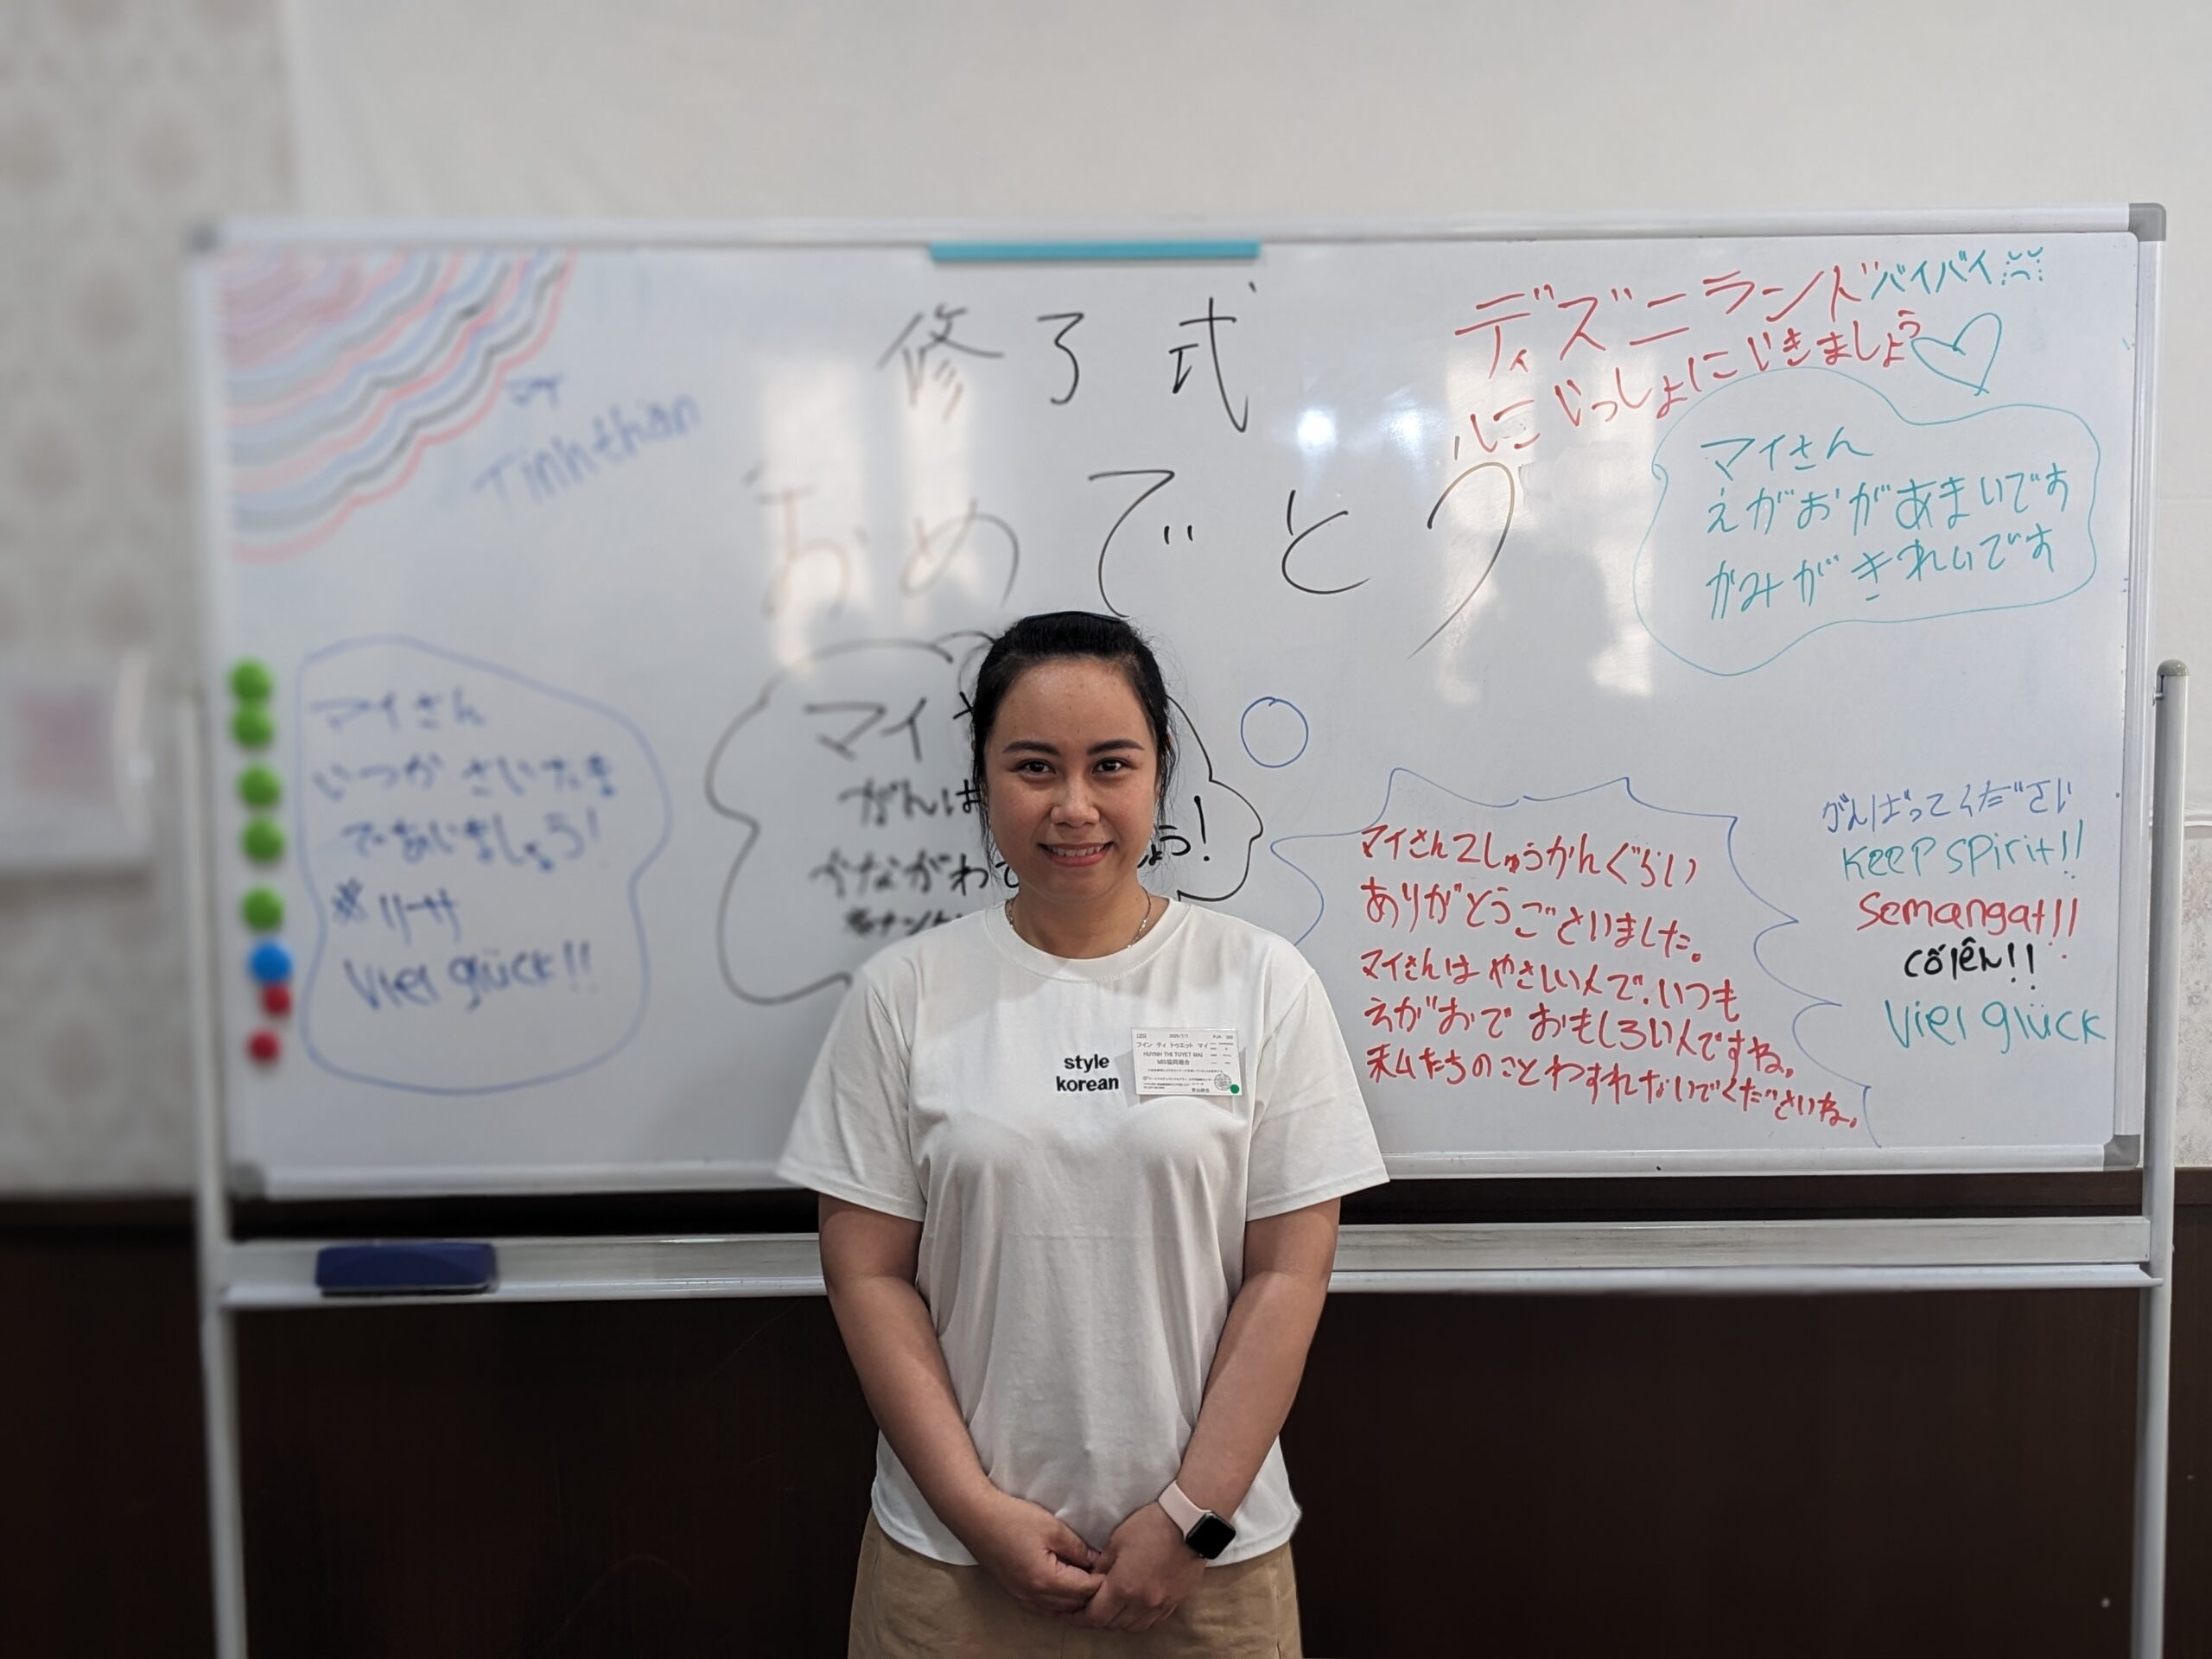 修了式
おめでとう
Tinh thần
ディズニーランドバイバイ
にいっしょにいきましょう
マイさん
えがおがあまいです
かみがきれいです
マイさん
いつかさいたま
であいましょう!
※リーサ
Viel glück!!
マイ
がんば
かながわで
ょう!
マイさん2しゅうかんぐらい
ありがとうございました。
マイさんはやさしい人で、いつも
えがおでおもしろい人ですね。
私たちのことわすれないでくださいね。
がんばってください
Keep spirit!!
Semangat!!
cố lên!!
Viel glück
style
korean
フイン ティ トゥエット マイ
HUYNH THI TUYET MAI
MBS協同組合